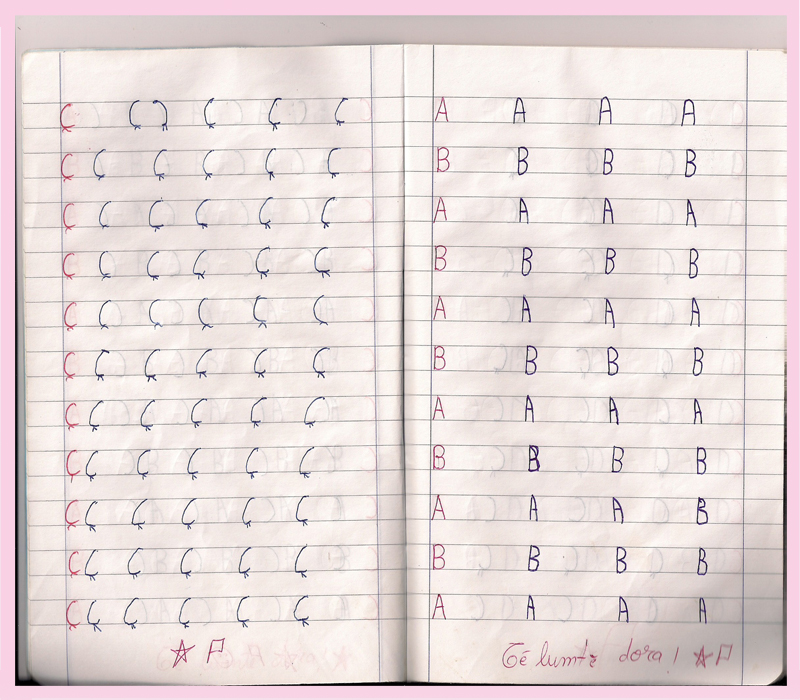 Ç Ç Ç Ç Ç Ç
Ç Ç Ç Ç Ç Ç
Ç Ç Ç Ç Ç Ç
Ç Ç Ç Ç Ç Ç
Ç Ç Ç Ç Ç Ç
Ç Ç Ç Ç Ç Ç
Ç Ç Ç Ç Ç Ç
Ç Ç Ç Ç Ç Ç
Ç Ç Ç Ç Ç Ç
Ç Ç Ç Ç Ç Ç
Ç Ç Ç Ç Ç Ç
☆ P
A A A A
B B B B
A A A A
B B B B
A A A A
B B B B
A A A A
B B B B
A A A B
B B B B
A A A A
Të lumtë dora! ☆ P